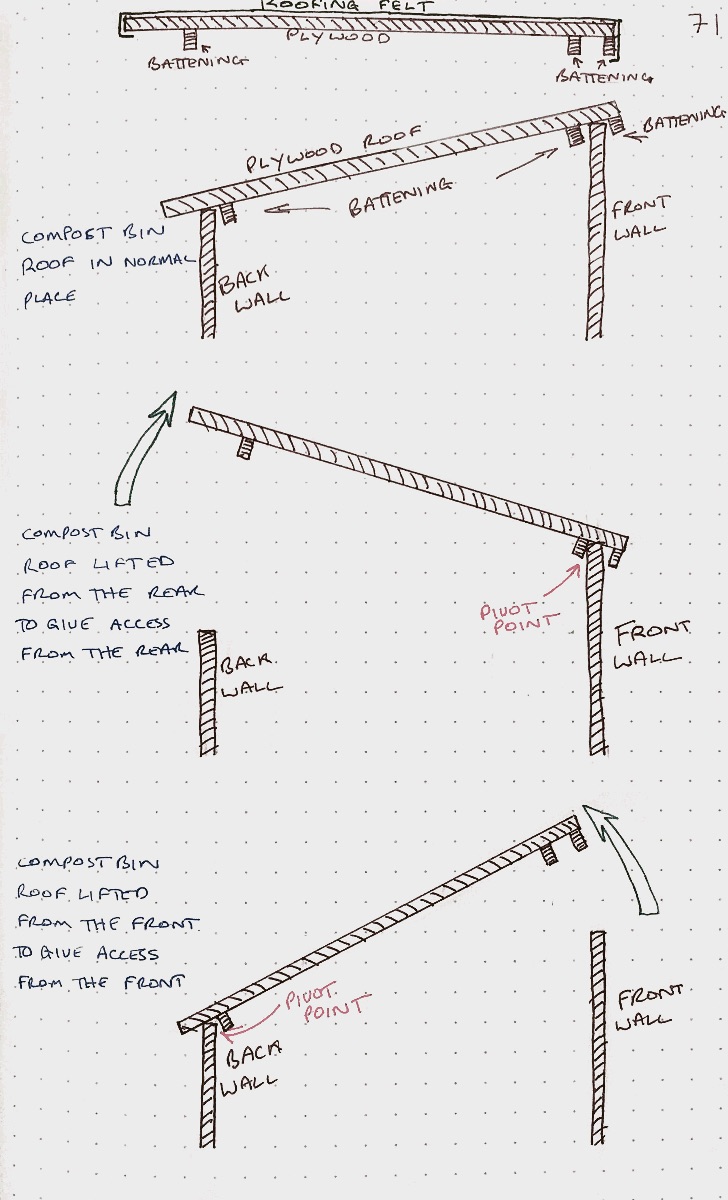 ROOFING FELT
71
PLYWOOD
BATTENING
BATTENING
PLYWOOD ROOF
BATTENING
BATTENING
COMPOST BIN
ROOF IN NORMAL
PLACE
BACK
WALL
FRONT
WALL
COMPOST BIN
ROOF LIFTED
FROM THE REAR
TO GIVE ACCESS
FROM THE REAR
PIVOT
POINT
BACK
WALL
FRONT
WALL
COMPOST BIN
ROOF LIFTED
FROM THE FRONT
TO GIVE ACCESS
FROM THE FRONT
PIVOT
POINT
BACK
WALL
FRONT
WALL